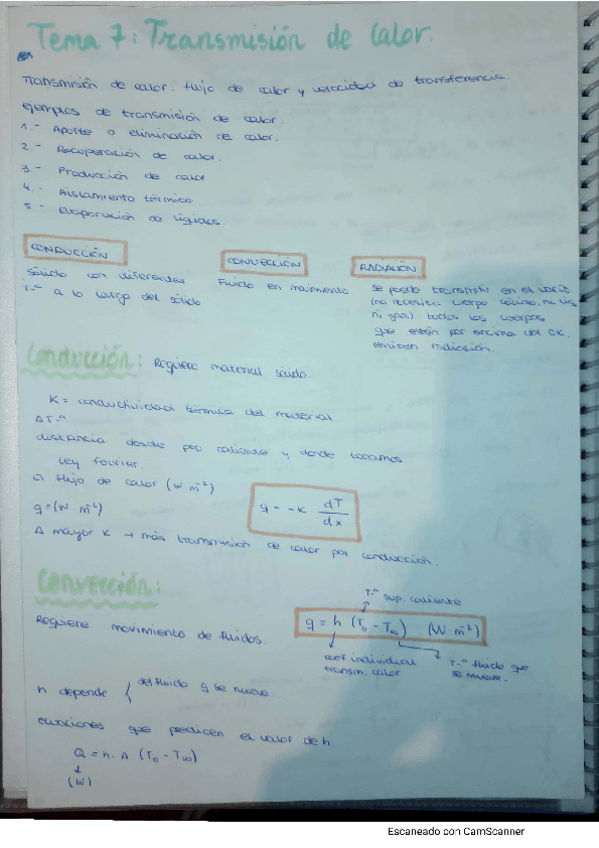 Tema 7: Transmisión de calor.
Transmisión de calor: flujo de calor y velocidad de transferencia.
Ejemplos de transmisión de calor.
1.- Aporte o eliminación de calor.
2.- Recuperación de calor.
3.- Producción de calor
4.- Aislamiento térmico
5.- Evaporación de líquidos.
CONDUCCIÓN
Sólido con diferentes
T.ª a lo largo del sólido
CONVECCIÓN
Fluido en movimiento
RADIACIÓN
Se puede transmitir en el vacío
(no necesita cuerpo sólido, ni líq
ni gas) todos los cuerpos
que estén por encima del 0K.
emiten radiación.
Conducción: Requiere material sólido.
K = conductividad térmica del material.
ΔT.ª
distancia desde foco caliente y donde tocamos
Ley fourier.
flujo de calor (W m⁻²)
q = (W · m⁻²)
q = -K · dT/dx
Δ mayor K → más transmisión de calor por conducción.
Convección:
T.ª sup. caliente
Requiere movimiento de fluidos.
q = h (T₀ - T∞) (W · m⁻²)
coef individual
transm. calor
T.ª fluido que
se mueve.
h depende { del fluido q se mueve.
ecuaciones que predicen el valor de h
Q = h · A (T₀ - T∞)
↓
(W)
Escaneado con CamScanner